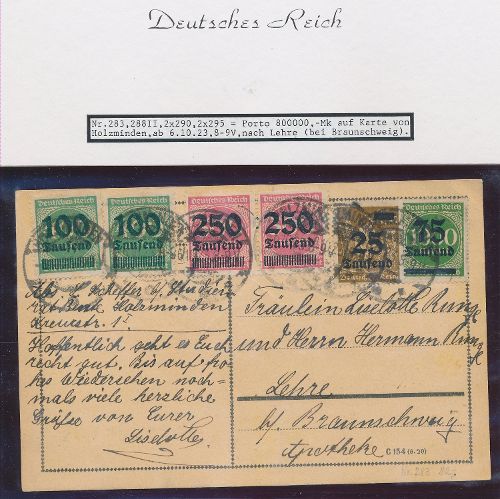 Deutsches Reich
Nr.283,288II,2x290,2x295 = Porto 800000,-Mk auf Karte von
Holzminden,ab 6.10.23,8-9V,nach Lehre (bei Braunschweig).
Deutsches Reich
100
Tausend
Deutsches Reich
100
Tausend
Deutsches Reich
250
Tausend
Deutsches Reich
250
Tausend
25
Tausend
Deutsches Reich
75
Tausend
Holzminden
Hoffentlich geht es Euch
recht gut. Bis auf fro-
hes Wiedersehen noch-
mals viele herzliche
Grüße von Eurer
Liselotte.
Fräulein Liselotte Runge
und Herrn Hermann Runge
Lehre
b/ Braunschweig
Apotheke
C 154 (6.20)